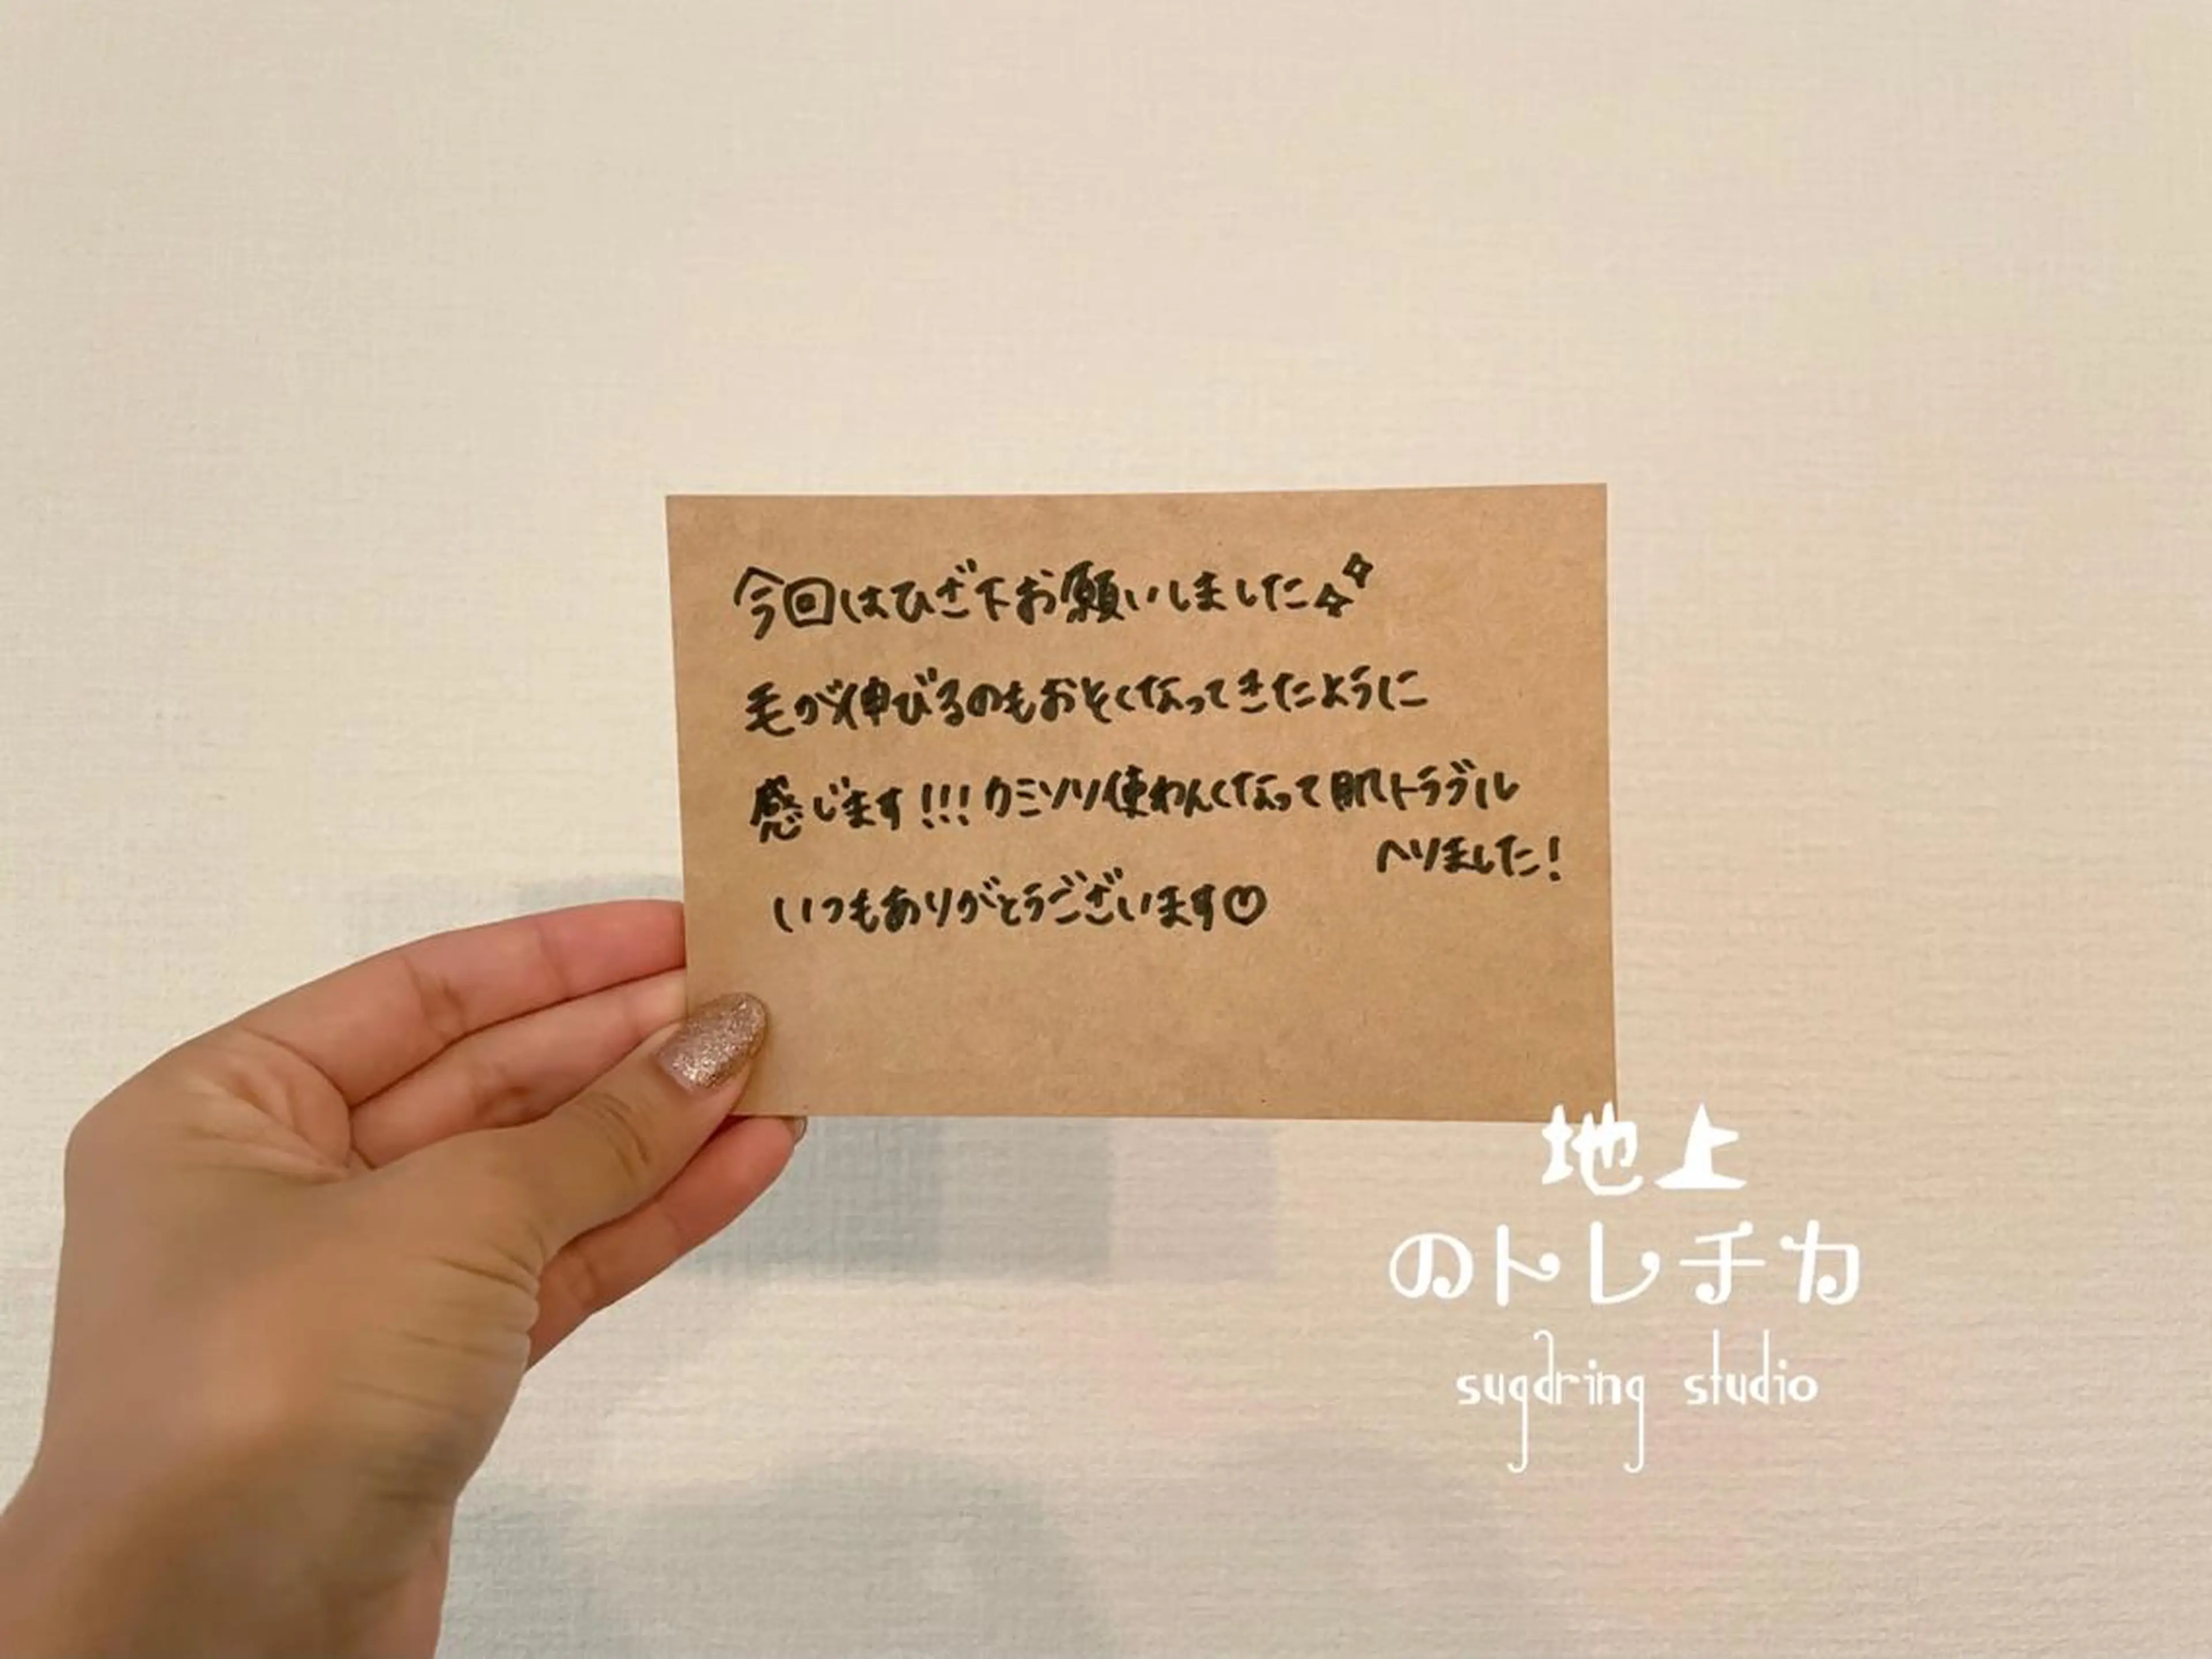 今回はひざ下お願いしました
毛が伸びるのもおそくなってきたように
感じます!!!カミソリ使わんくなって肌トラブル
ヘリました!
いつもありがとうございます
地上
のトレチカ
sugaring studio